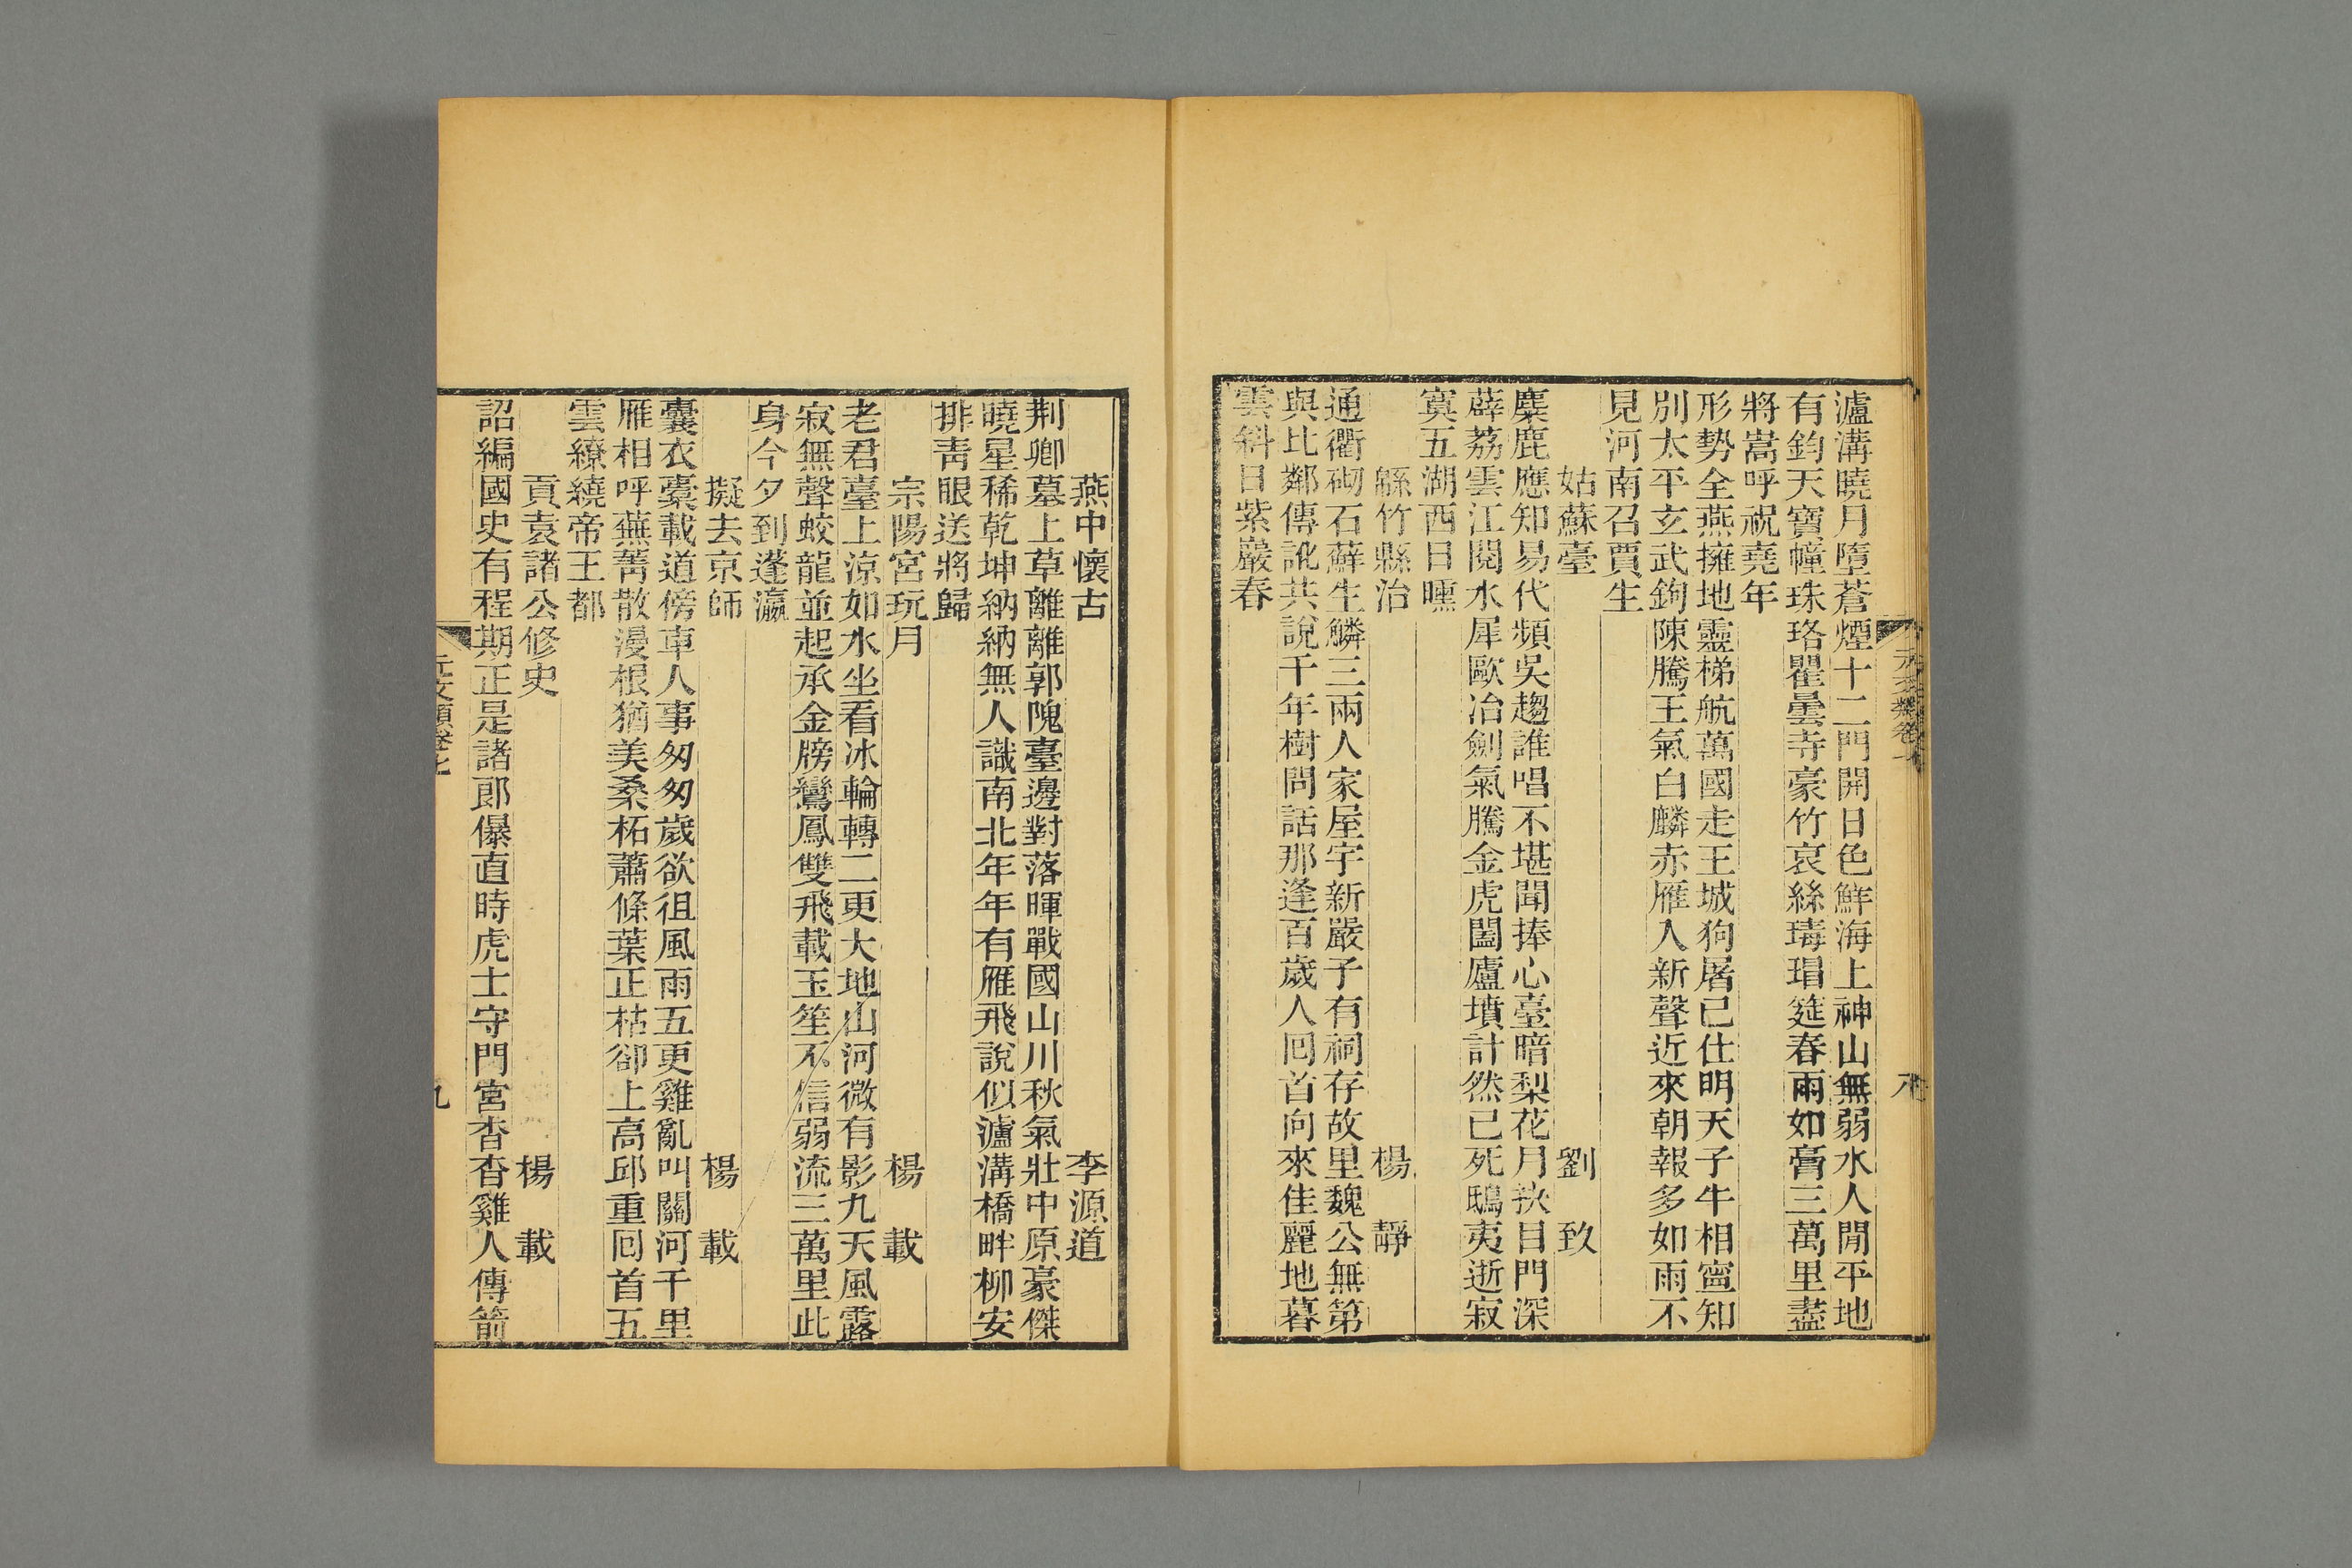 瀘溝曉月墮蒼煙十二門開日色鮮海上神山無弱水人閒平地
有鈞天寶幢珠珞瞿曇寺豪竹哀絲瑇瑁筵春雨如膏三萬里盡
將嵩呼祝堯年
形勢全燕擁地靈梯航萬國走王城狗屠已仕明天子牛相寧知
別太平玄武鉤陳騰王氣白麟赤雁入新聲近來朝報多如雨不
見河南召賈生
姑蘇臺 劉致
麋鹿應知易代頻吳趨誰唱不堪聞捧心臺暗梨花月抉目門深
薜荔雲江閱水犀歐冶劍氣騰金虎闔廬墳計然已死鴟夷逝寂
寞五湖西日曛
緜竹縣治 楊靜
通衢砌石蘚生鱗三兩人家屋宇新嚴子有祠存故里魏公無第
與比鄰傳訛共說千年樹問話那逢百歲人囘首向來佳麗地暮
雲斜日紫巖春
元文類卷七 八
燕中懷古 李源道
荆卿墓上草離離郭隗臺邊對落暉戰國山川秋氣壯中原豪傑
曉星稀乾坤納納無人識南北年年有雁飛說似瀘溝橋畔柳安
排靑眼送將歸
宗陽宮玩月 楊載
老君臺上涼如水坐看冰輪轉二更大地山河微有影九天風露
寂無聲蛟龍並起承金牓鸞鳳雙飛載玉笙不信弱流三萬里此
身今夕到蓬瀛
擬去京師 楊載
囊衣槖載道傍車人事匆匆歲欲徂風雨五更雞亂叫關河千里
雁相呼蕪菁散漫根猶美桑柘蕭條葉正枯卻上高邱重囘首五
雲繚繞帝王都
貢袁諸公修史 楊載
詔編國史有程期正是諸郎儤直時虎士守門宮杳杳雞人傳箭
元文類卷七 九